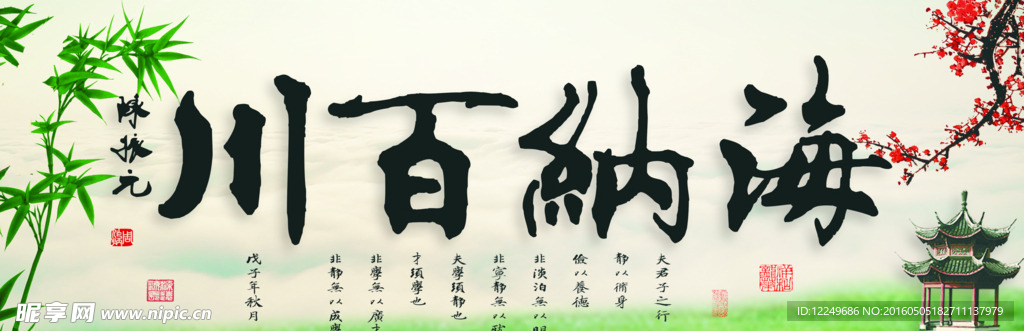 海納百川
夫君子之行
靜以脩身
儉以養德
非淡泊無以明
非寧靜無以致
夫學須靜也
才須學也
非學無以廣才
非靜無以成學
戊子年秋月
陳振元
昵享网 www.nipic.cn
ID:12249686 NO:20160505182711137979